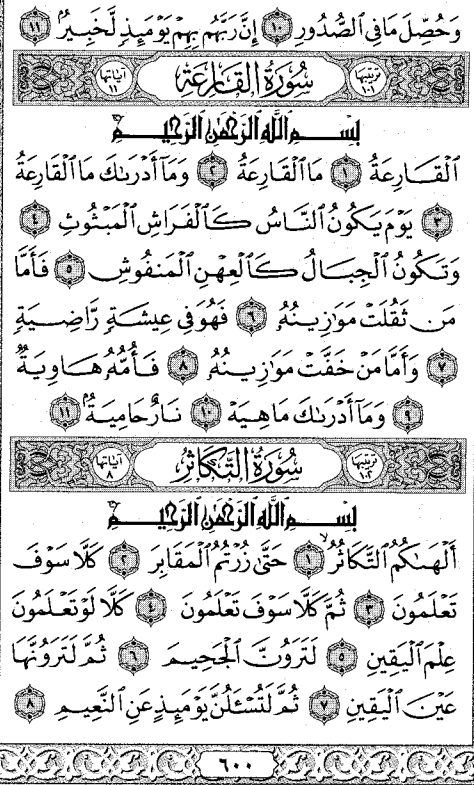 وَحُصِّلَ مَا فِي ٱلصُّدُورِ ١٠ إِنَّ رَبَّهُم بِهِمْ يَوْمَئِذٍ لَّخَبِيرٌۢ ١١
ترتيبها ١٠١ سُورَةُ القَارِعَة آياتها ١١
بِسْمِ ٱللَّهِ ٱلرَّحْمَٰنِ ٱلرَّحِيمِ
ٱلْقَارِعَةُ ١ مَا ٱلْقَارِعَةُ ٢ وَمَآ أَدْرَىٰكَ مَا ٱلْقَارِعَةُ
٣ يَوْمَ يَكُونُ ٱلنَّاسُ كَٱلْفَرَاشِ ٱلْمَبْثُوثِ ٤
وَتَكُونُ ٱلْجِبَالُ كَٱلْعِهْنِ ٱلْمَنفُوشِ ٥ فَأَمَّا
مَن ثَقُلَتْ مَوَٰزِينُهُۥ ٦ فَهُوَ فِي عِيشَةٍ رَّاضِيَةٍ
٧ وَأَمَّا مَنْ خَفَّتْ مَوَٰزِينُهُۥ ٨ فَأُمُّهُۥ هَاوِيَةٌ
٩ وَمَآ أَدْرَىٰكَ مَا هِيَهْ ١٠ نَارٌ حَامِيَةٌۢ ١١
ترتيبها ١٠٢ سُورَةُ التَّكَاثُر آياتها ٨
بِسْمِ ٱللَّهِ ٱلرَّحْمَٰنِ ٱلرَّحِيمِ
أَلْهَىٰكُمُ ٱلتَّكَاثُرُ ١ حَتَّىٰ زُرْتُمُ ٱلْمَقَابِرَ ٢ كَلَّا سَوْفَ
تَعْلَمُونَ ٣ ثُمَّ كَلَّا سَوْفَ تَعْلَمُونَ ٤ كَلَّا لَوْ تَعْلَمُونَ
عِلْمَ ٱلْيَقِينِ ٥ لَتَرَوُنَّ ٱلْجَحِيمَ ٦ ثُمَّ لَتَرَوُنَّهَا
عَيْنَ ٱلْيَقِينِ ٧ ثُمَّ لَتُسْـَٔلُنَّ يَوْمَئِذٍ عَنِ ٱلنَّعِيمِ ٨
٦٠٠